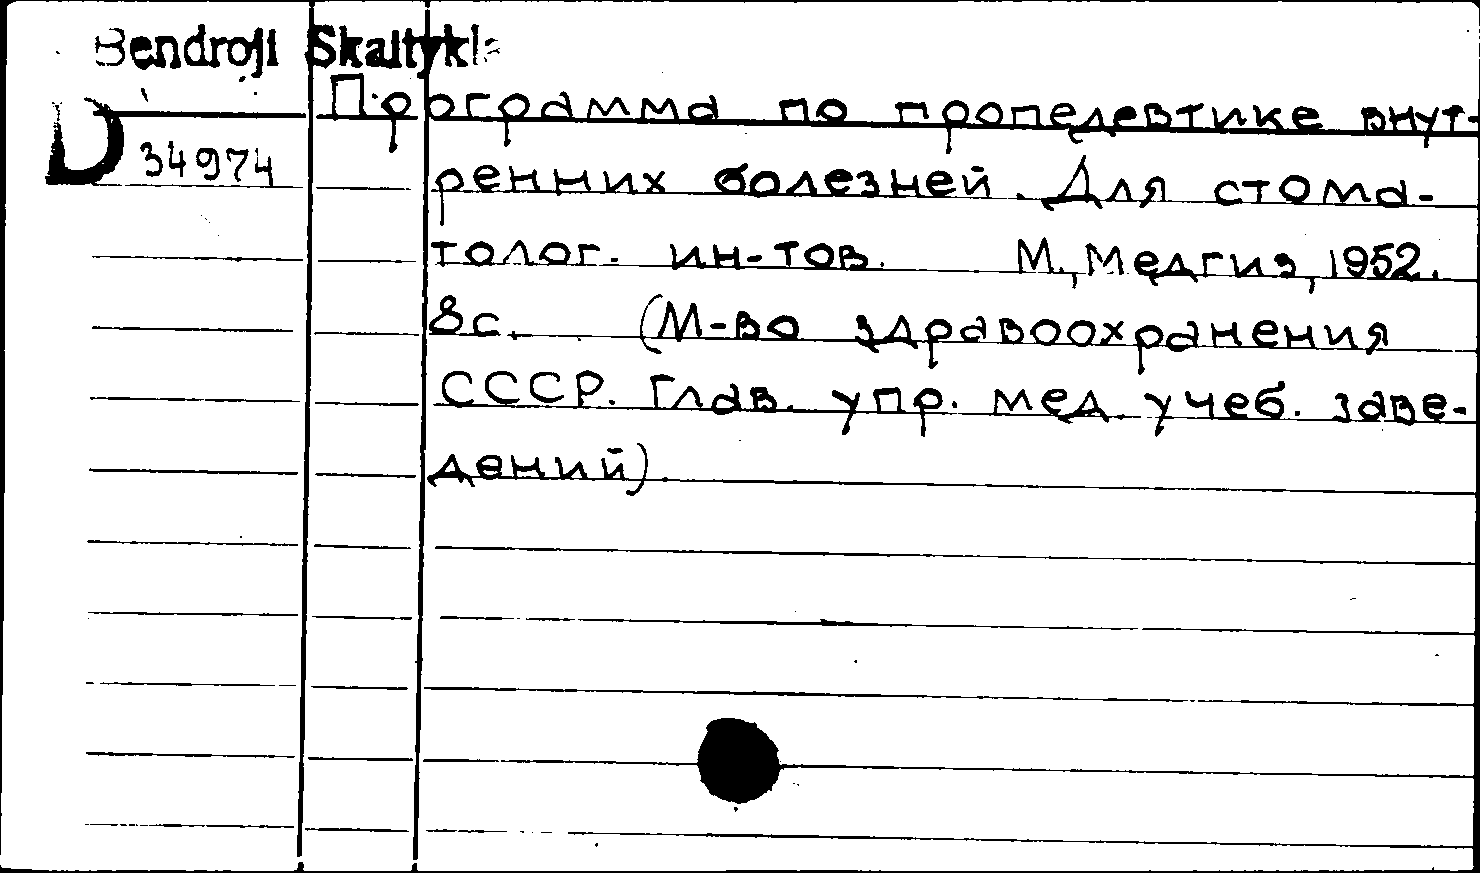 Bendroji Skaitykla
Программа по пропедевтике внут-
D 34974 ренних болезней. Для стома-
толог. ин-тов. М., Медгиз, 1952.
8с. (М-во здравоохранения
СССР. Глав. упр. мед. учеб. заве-
дений).